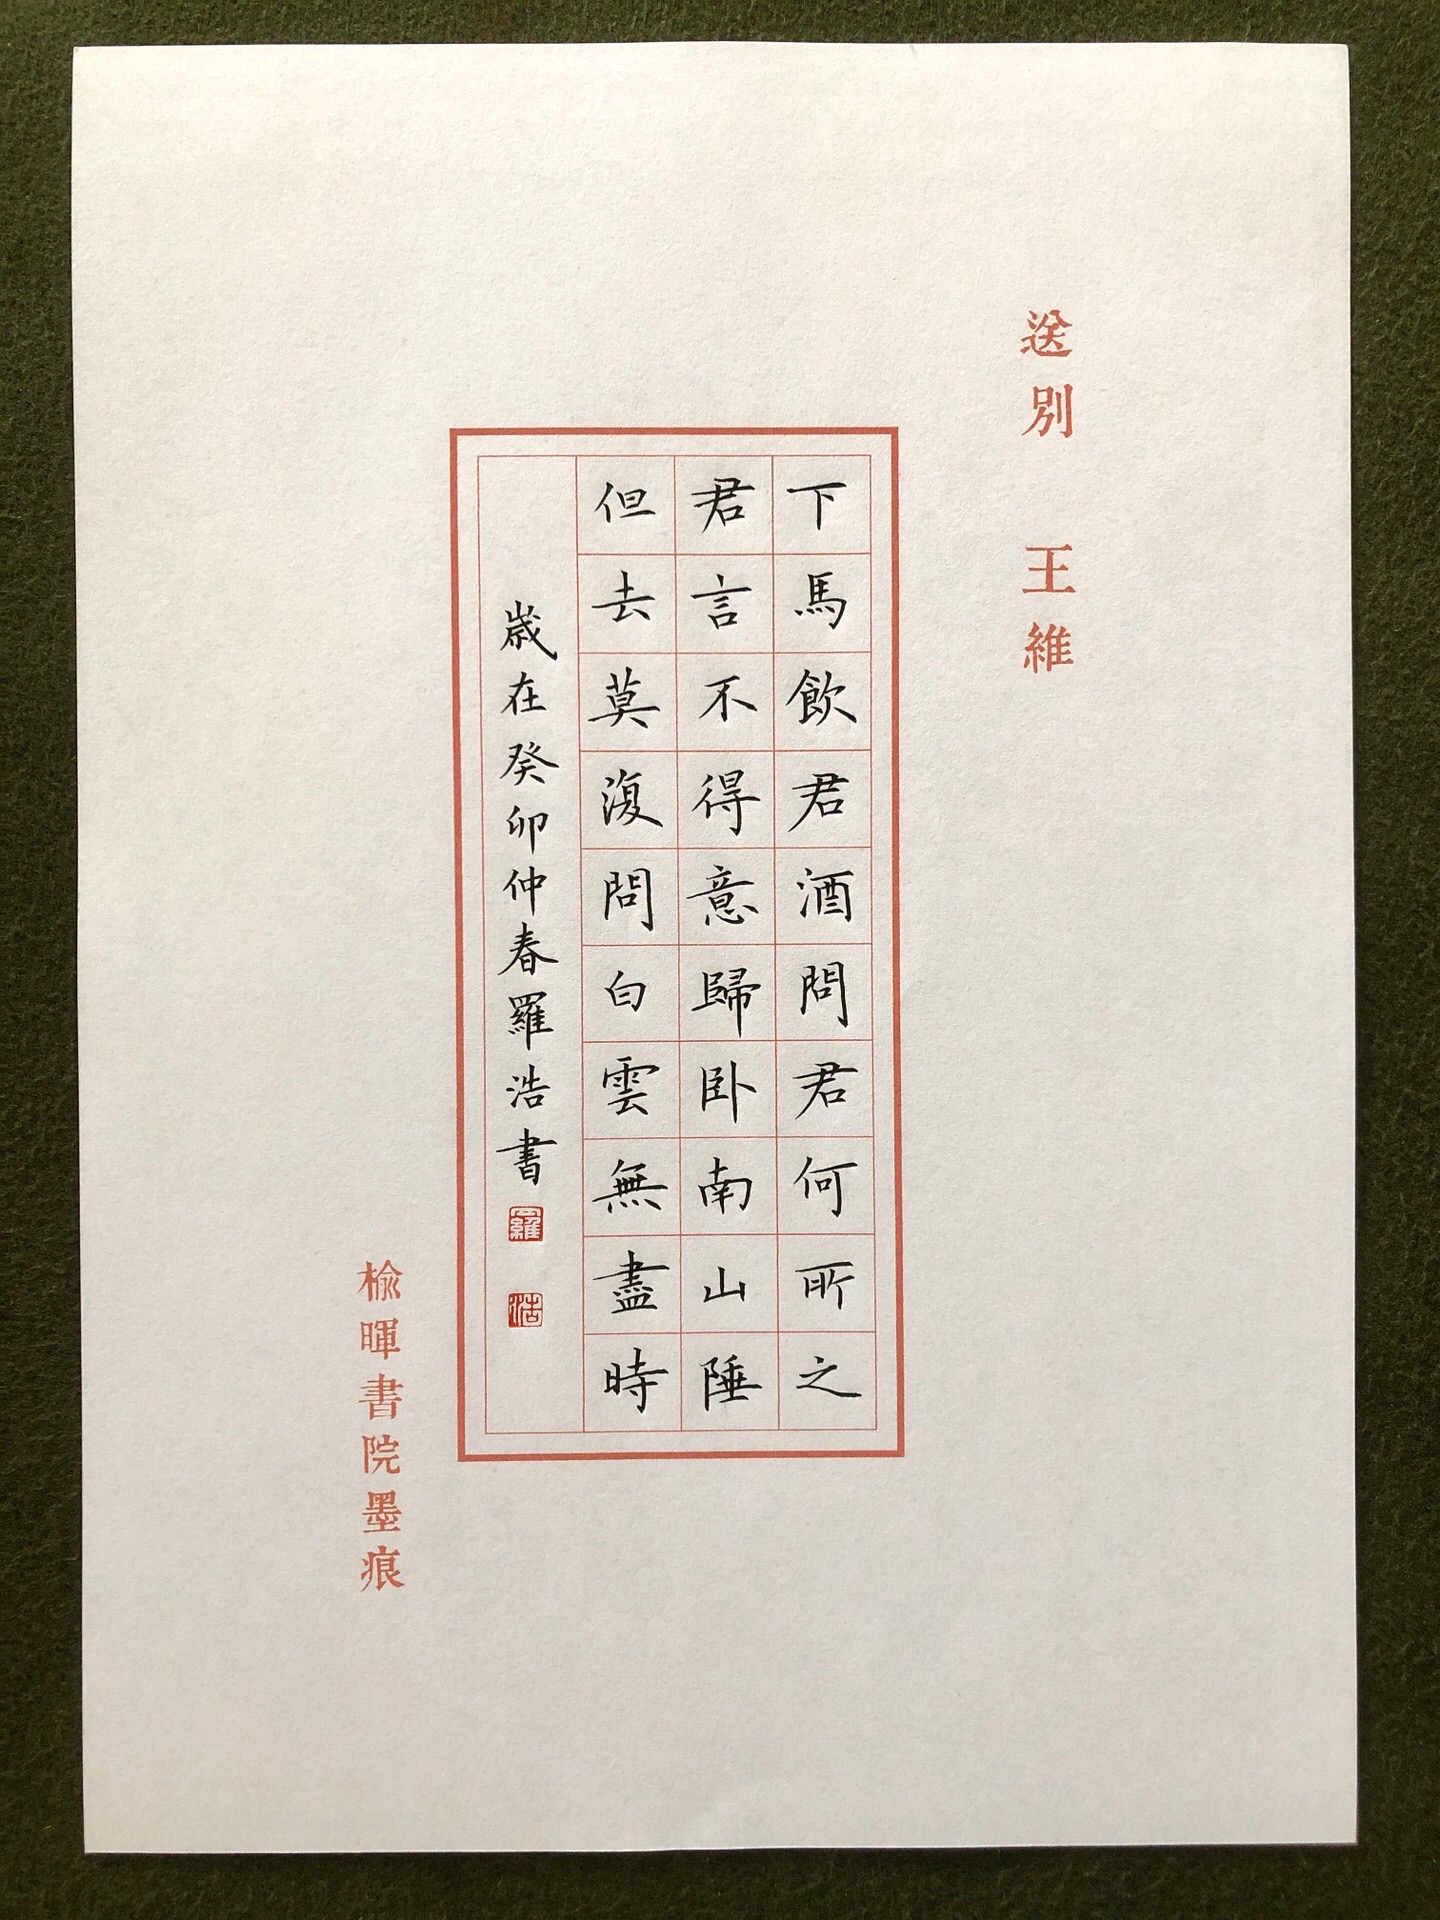 送別 王維
下馬飲君酒問君何所之
君言不得意歸卧南山陲
但去莫復問白雲無盡時
歲在癸卯仲春羅浩書
羅
浩
榆暉書院墨痕